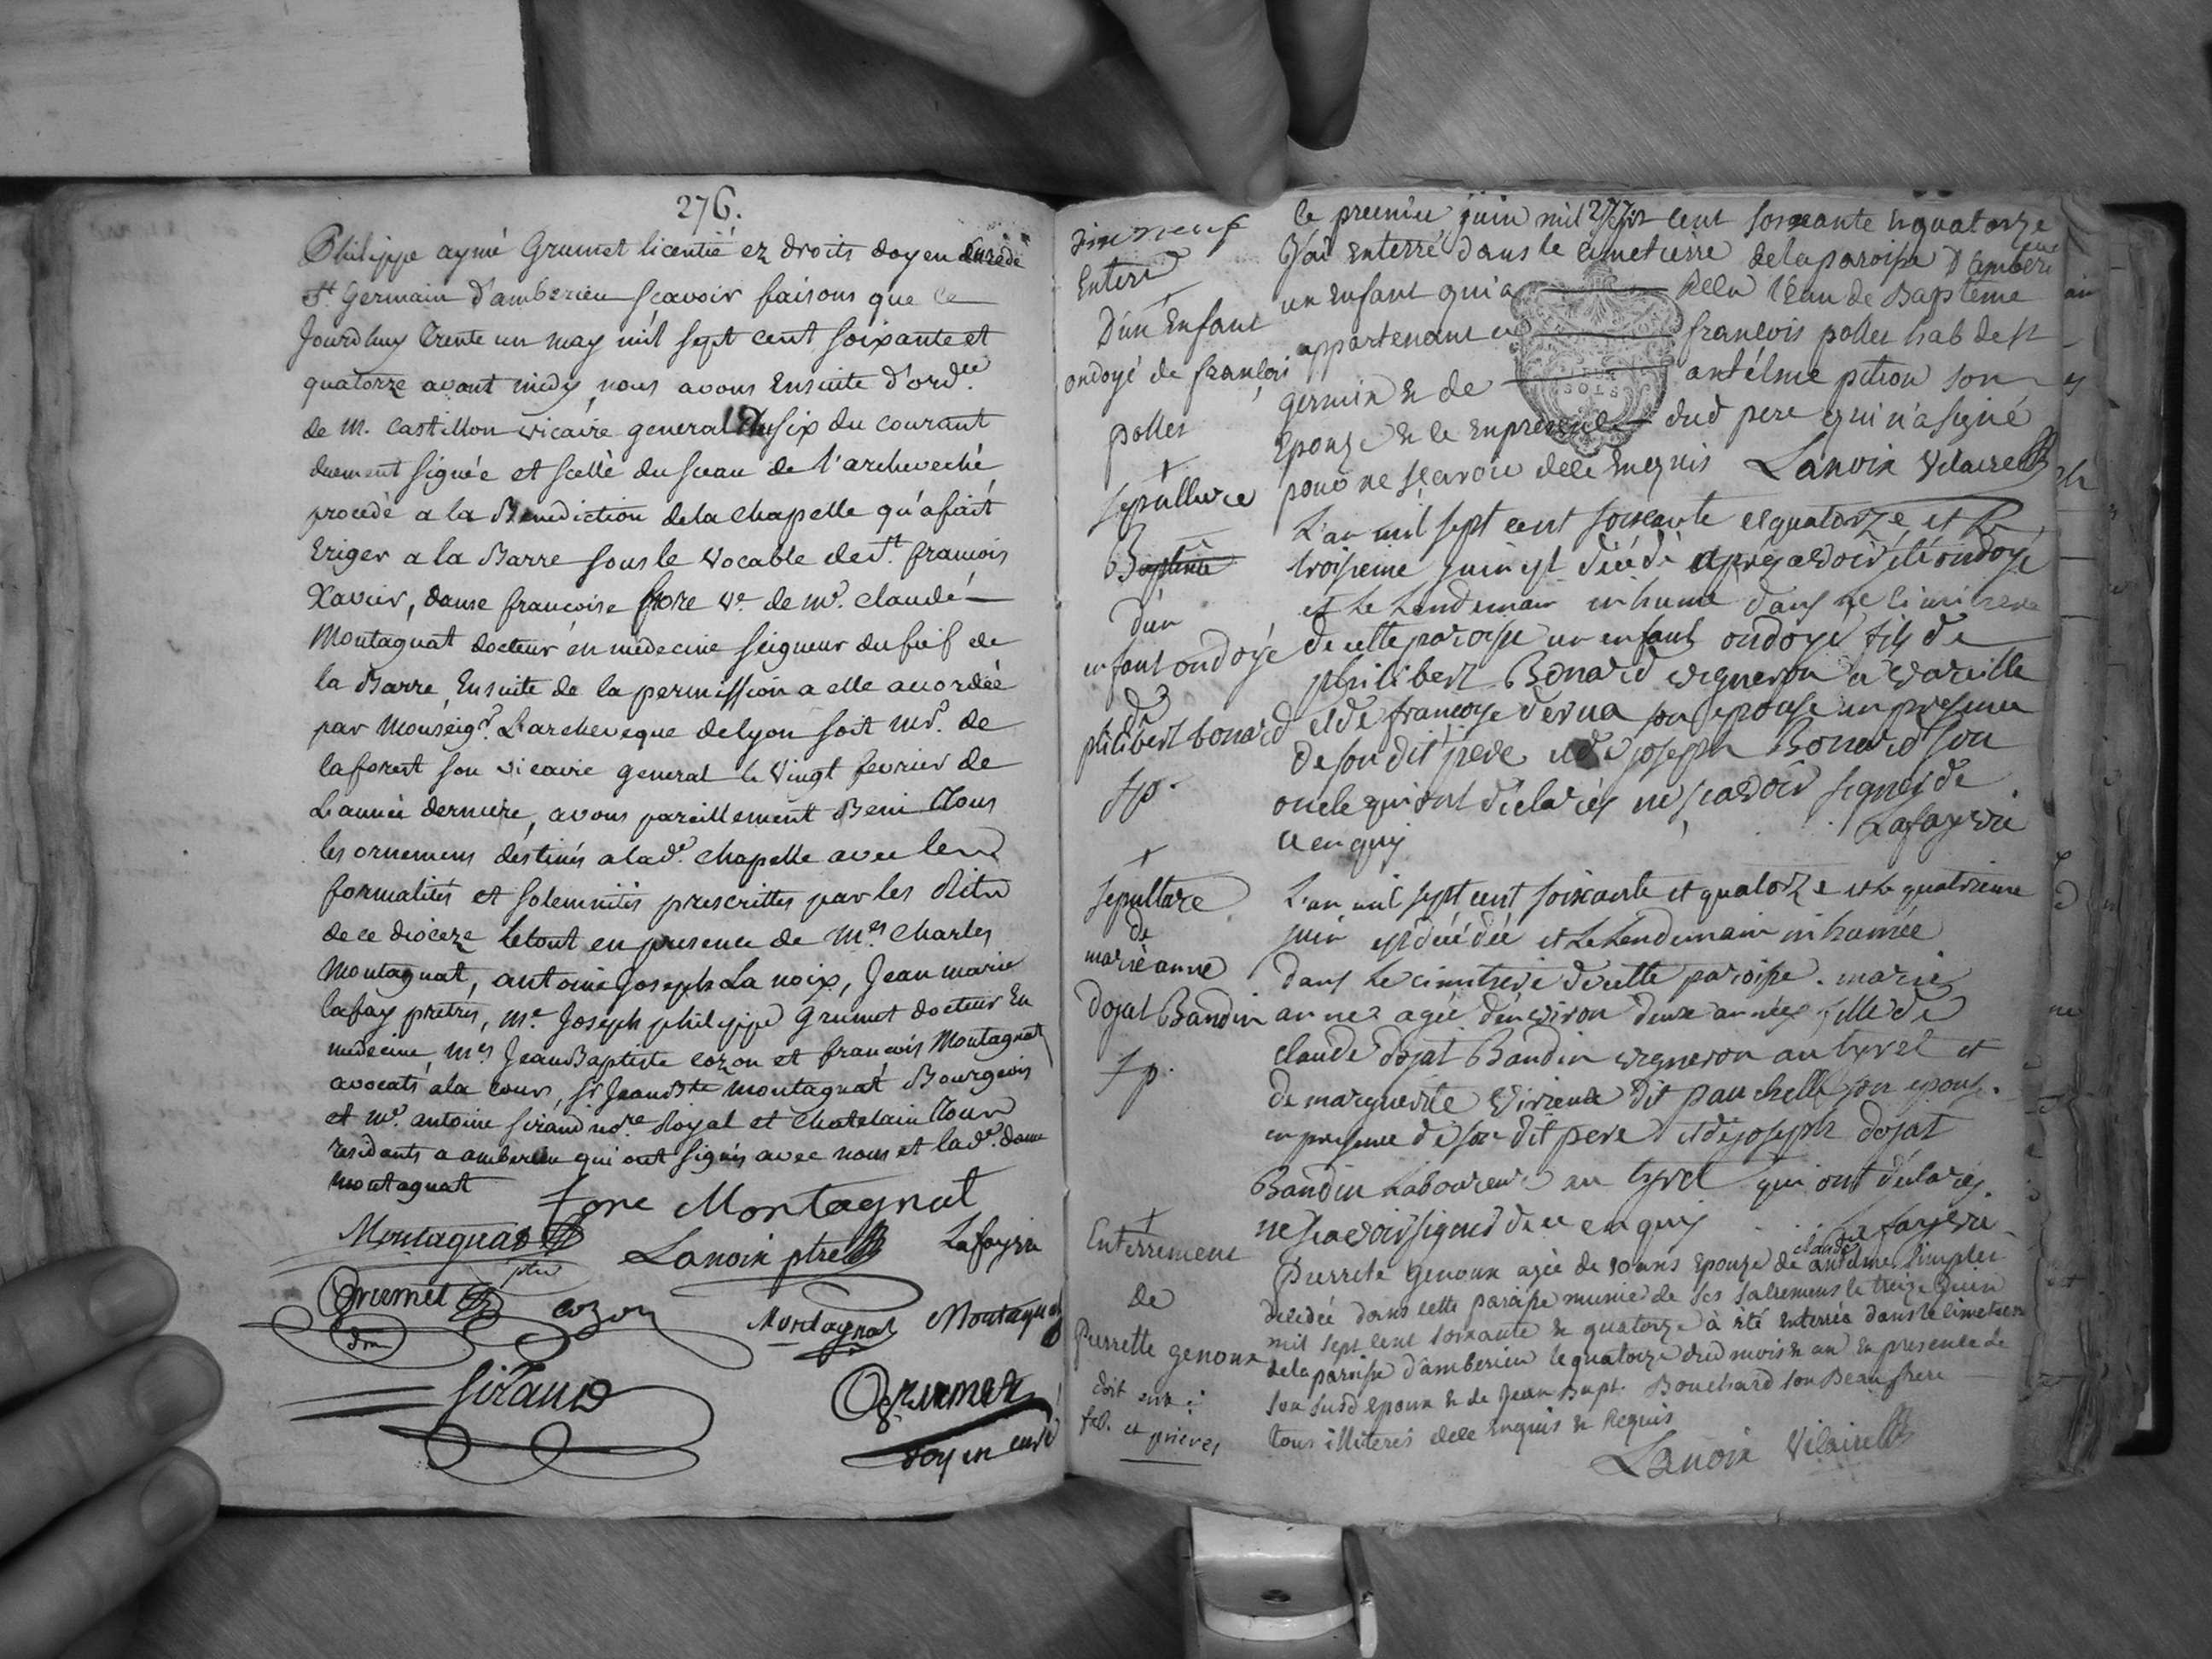 276.
Philippe aymé Grumet licentié ez droits doyen curé de
St. Germain d'amberieu sçavoir faisons que ce
Jourdhuy trente un may mil sept cent soixante et
quatorze avant midy, nous avons Ensuite d'ord.ce
de M. Castillon vicaire general du six du courant
duement signée et scellé du sceau de l'archeveché
procedé a la Benediction de la chapelle qu'a fait
Eriger a la Barre sous le vocable de St. francois
Xavier, dame françoise fore ve. de mr. claude
Montagnat docteur en médecine seigneur du fief de
la Barre Ensuite de la permission a elle accordée
par Monseigr. L'archeveque de lyon soit mr. de
laforest son vicaire general le vingt fevrier de
L'année derniere, avons pareillement Beni tous
les ornemens destinés a lade. chapelle avec les
formalités et solemnités prescrittes par les Ritu
de ce dioceze le tout en presence de mes. Charles
Montagnat, antoine Joseph La noix, Jean marie
lafay prêtres, me. Joseph philippe Grumet docteur En
medecine, mes JeanBaptiste cozon et francois Montagnat
avocats a la cour, sr JeanBte montagnat Bourgeois
et mr. antoine sirand nore. Royal et Chatelain tous
residants a amberieu qui ont signés avec nous et lade. dame
montagnat
fore Montagnat
Montagnat ptre
Lanoix ptre
Lafay
Grumet dm
cozon
Montagnat
Montagnat
Sirand
Grumet
doyen curé
277
Enterrt
D'un Enfant
ondoyé de françois
pollet
le premier juin mil sept cent soixante & quatorze
J'ai enterré dans le cimetiere de la paroisse D'amberieu
un enfant qui a Reçu l'eau de Baptême
appartenant a françois pollet hab de st
germin & de antélme pition son
Epouze & en presence dud pere qui n'a signé
pour ne sçavoir de ce Enquis Lanoix Vicaire
sepulture
Baptême
d'un
enfant ondoyé
de
philibert bonard
fp.
L'an mil sept cent soixante et quatorze et le
troisieme juin est décédé apres avoir été ondoyé
et le lendemain inhumé dans le cimitiere
de cette paroisse un enfant ondoyé fils de
philibert Bonard vigneron a vareille
et de françoise derva son epouse en presence
de son dit pere et de joseph Bonard son
oncle qui ont déclarés ne scavoir signer de
ce enquis
Lafay vic
sepulture
de
marie anne
dojat Bandin
fp.
L'an mil sept cent soixante et quatorze et le quatrieme
juin est décédée et le lendemain inhumée
dans le cimitiere de cette paroisse. marie
anne agée d'environ deux années fille de
claude dojat Bandin vigneron au tyret et
de marguerite dit son epouse.
en presence de son dit pere et de joseph dojat
Bandin Laboureur au tyret qui ont déclarés
ne scavoir signer de ce enquis
Lafay vic
Enterrement
de
Pierrette genoux
Pierrete Genoux agée de 50 ans Epouze de claude simplet
décédée dans cette paroisse munie de ses sacremens le treize Juin
mil sept cent soixante & quatorze à été enterrée dans le cimetiere
de la paroisse d'amberieu le quatorze dud mois & an En presence de
son susd epoux & de Jean Bapt. Bouchard son Beau frere
tous illiterés de ce Enquis & Requis
Lanoix Vicaire